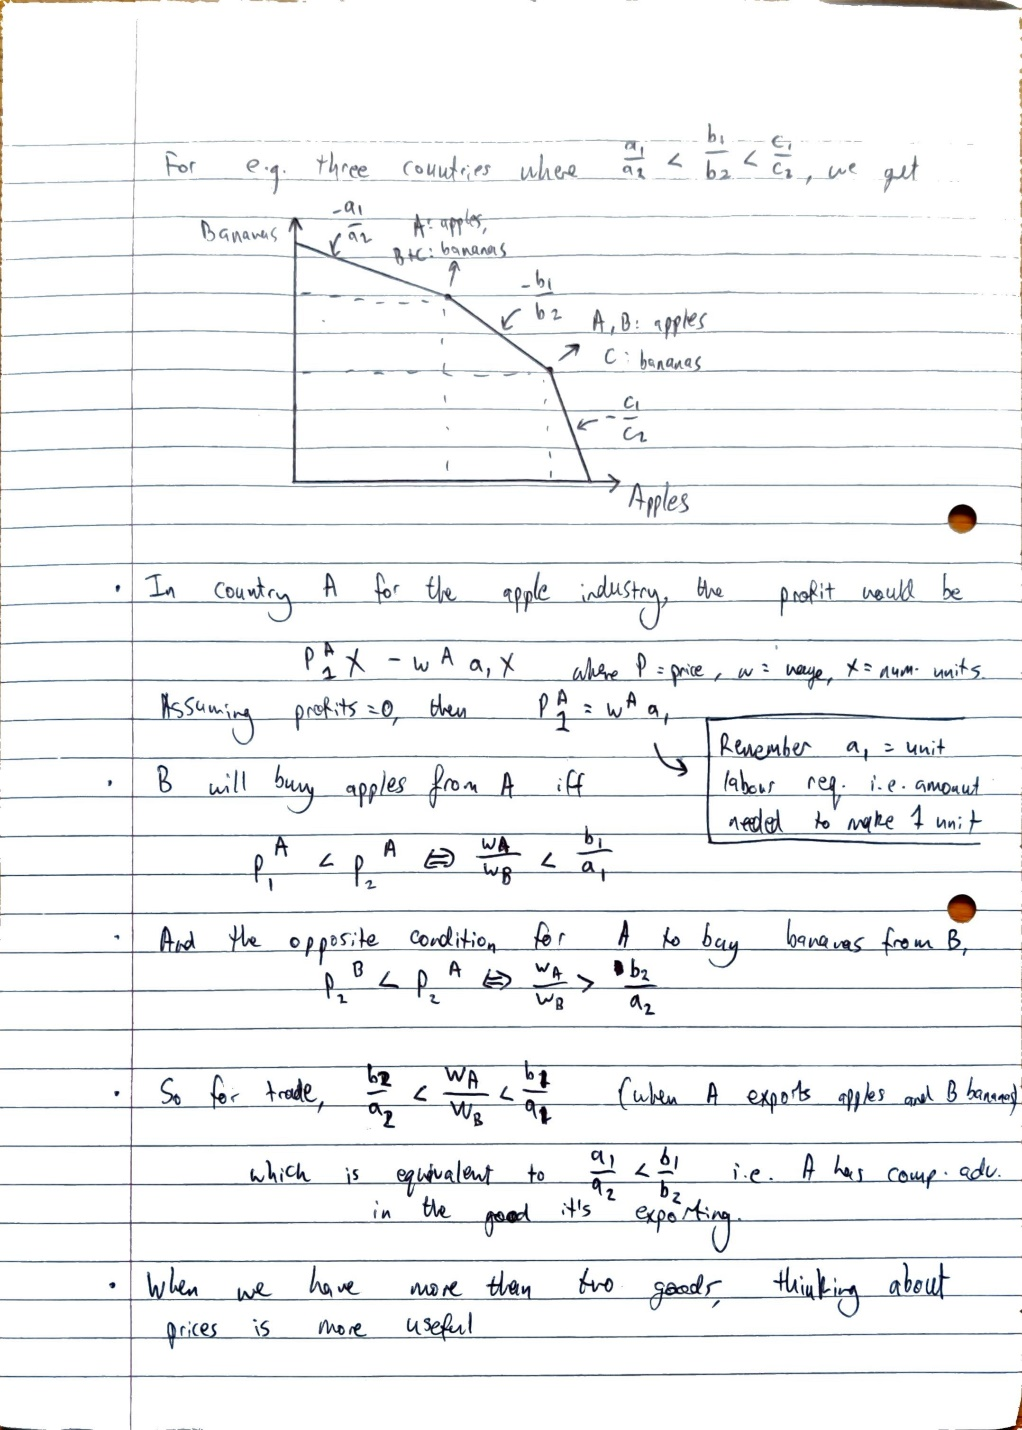 For e.g. three countries where a₁/a₂ < b₁/b₂ < c₁/c₂, we get
Bananas
-a₁/a₂
A: apples,
B+C: bananas
-b₁/b₂
A, B: apples
C: bananas
-c₁/c₂
Apples
• In country A for the apple industry, the profit would be
P₁ᴬ X - wᴬ a₁ X where P = price, w = wage, X = num. units.
Assuming profits = 0, then P₁ᴬ = wᴬ a₁
Remember a₁ = unit
labour req. i.e. amount
needed to make 1 unit
• B will buy apples from A iff
P₁ᴬ < P₂ᴬ ⇔ wA/wB < b₁/a₁
• And the opposite condition for A to buy bananas from B,
P₂ᴮ < P₂ᴬ ⇔ wA/wB > b₂/a₂
• So for trade, b₂/a₂ < wA/wB < b₁/a₁ (when A exports apples and B bananas)
which is equivalent to a₁/a₂ < b₁/b₂ i.e. A has comp. adv.
in the good it's exporting.
• When we have more than two goods, thinking about
prices is more useful